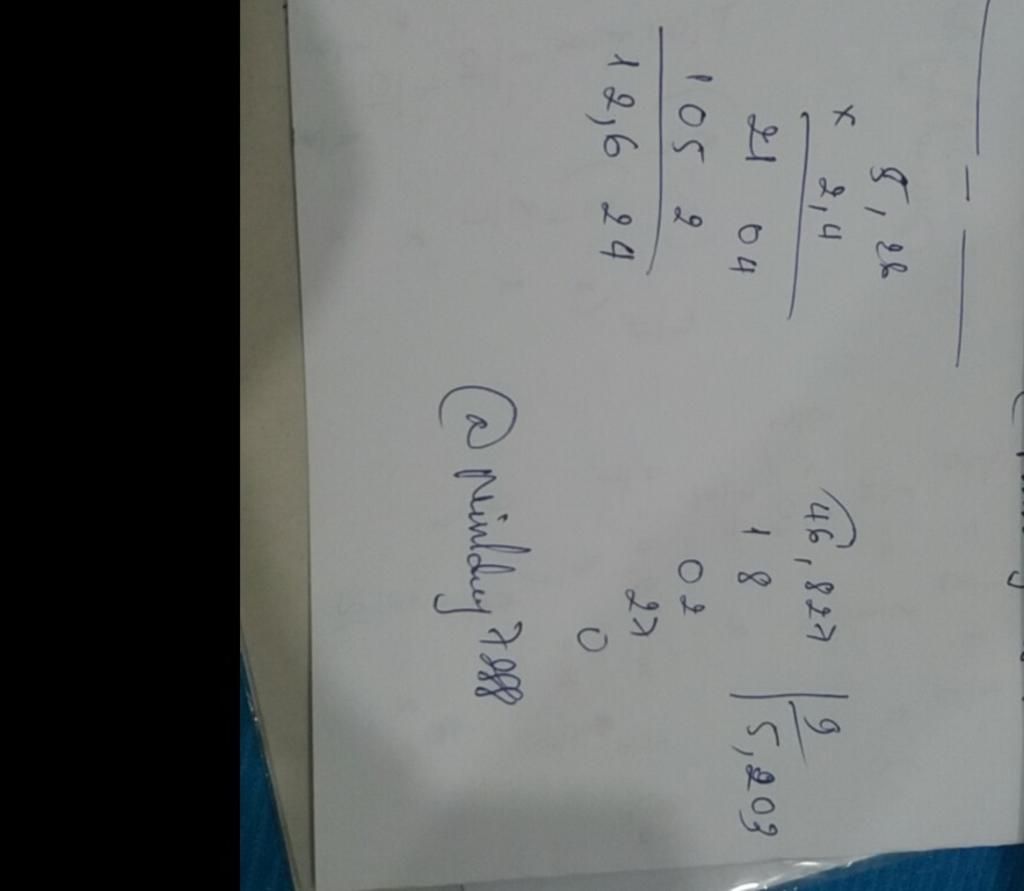 5,26
× 2,4
21 04
105 2
12,6 24
46,827 9
1 8 5,203
02
27
0